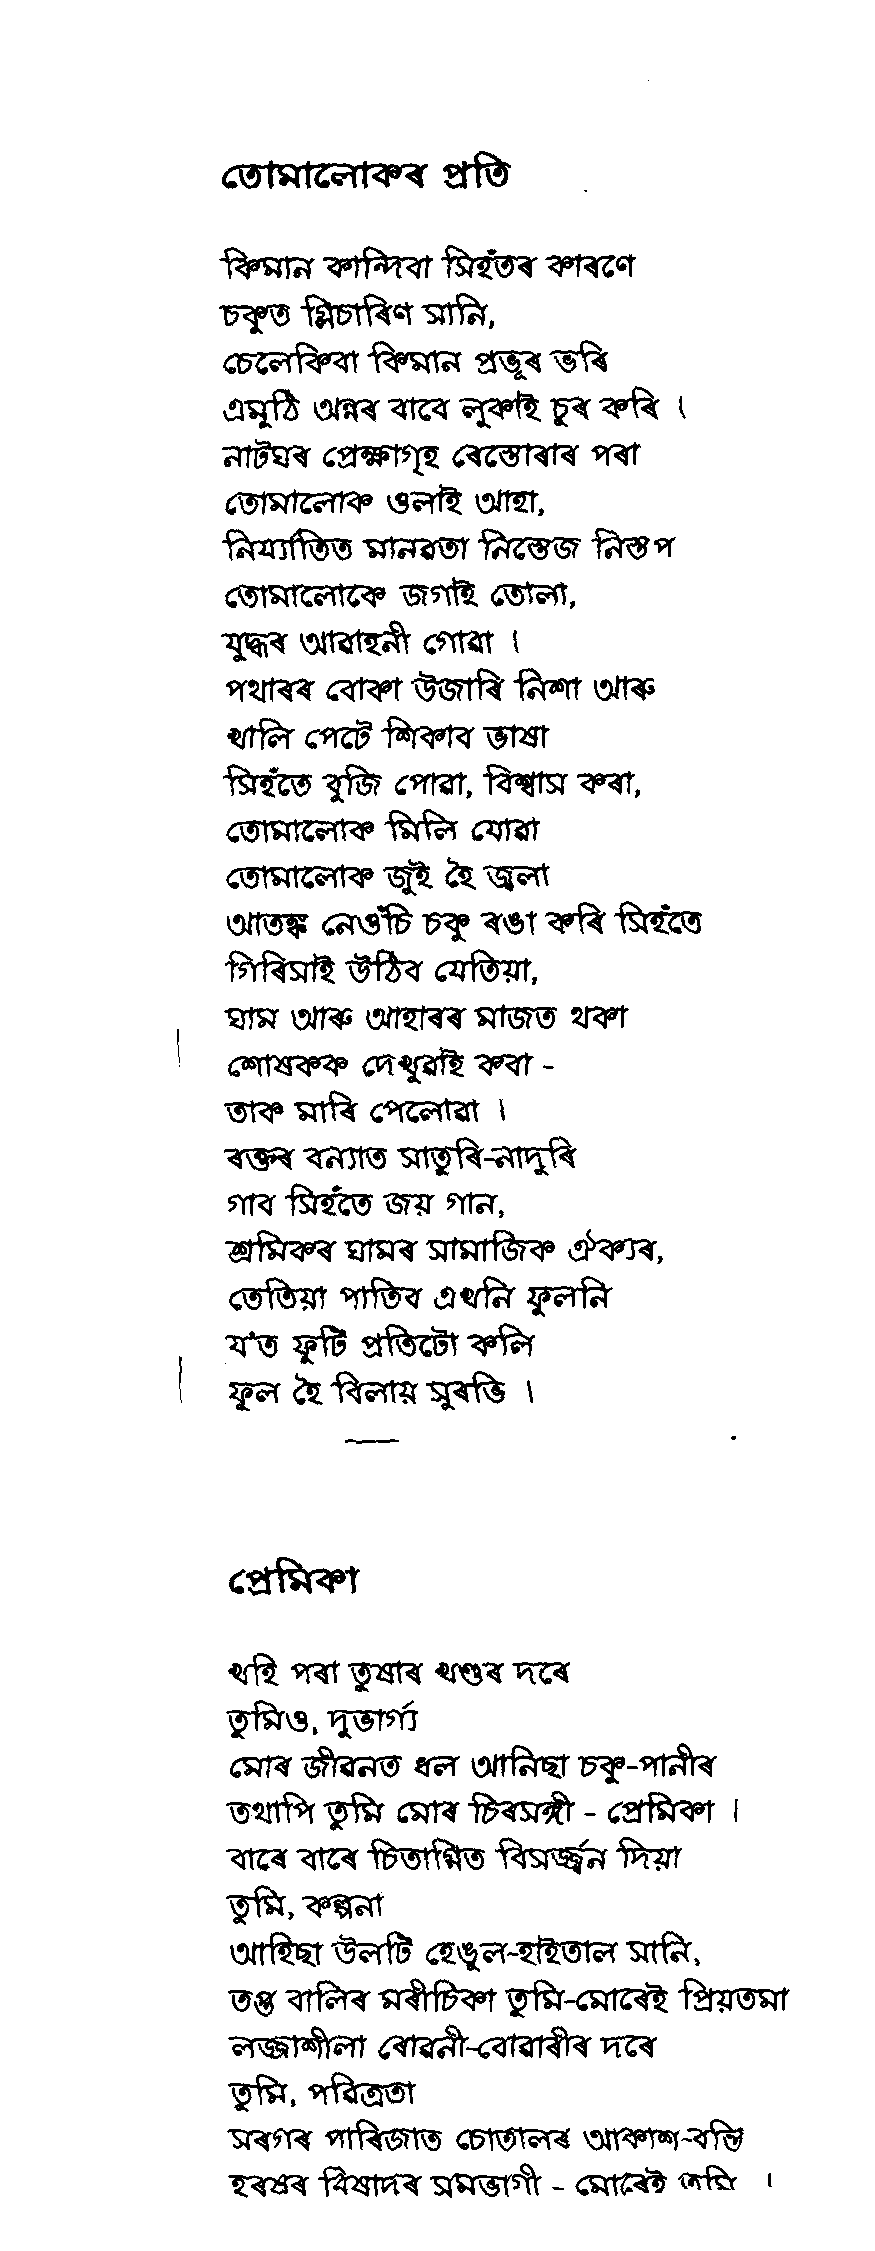 তোমালোকৰ প্ৰতি
কিমান কান্দিবা সিহঁতৰ কাৰণে
চকুত গ্লিচাৰিণ সানি,
চেলেকিবা কিমান প্ৰভূৰ ভৰি
এমুঠি অন্নৰ বাবে লুকাই চুৰ কৰি ।
নাটঘৰ প্ৰেক্ষাগৃহ ৰেস্তোৰাৰ পৰা
তোমালোক ওলাই আহা,
নিৰ্য্যাতিত মানৱতা নিস্তেজ নিস্তপ
তোমালোকে জগাই তোলা,
যুদ্ধৰ আৱাহনী গোৱা ।
পথাৰৰ বোকা উজাৰি নিশা আৰু
খালি পেটে শিকাব ভাষা
সিহঁতে বুজি পোৱা, বিশ্বাস কৰা,
তোমালোক মিলি যোৱা
তোমালোক জুই হৈ জ্বলা
আতঙ্ক নেওঁচি চকু ৰঙা কৰি সিহঁতে
গিৰিসাই উঠিব যেতিয়া,
ঘাম আৰু আহাৰৰ মাজত থকা
শোষকক দেখুৱাই কবা -
তাক মাৰি পেলোৱা ।
ৰক্তৰ বন্যাত সাতুৰি-নাদুৰি
গাব সিহঁতে জয় গান,
শ্ৰমিকৰ ঘামৰ সামাজিক ঐক্যৰ,
তেতিয়া পাতিব এখনি ফুলনি
য'ত ফুটি প্ৰতিটো কলি
ফুল হৈ বিলায় সুৰভি ।
প্ৰেমিকা
খহি পৰা তুষাৰ খণ্ডৰ দৰে
তুমিও, দুভাৰ্গ্য
মোৰ জীৱনত ধল আনিছা চকু-পানীৰ
তথাপি তুমি মোৰ চিৰসঙ্গী - প্ৰেমিকা ।
বাৰে বাৰে চিতাগ্নিত বিসৰ্জ্জন দিয়া
তুমি, কল্পনা
আহিছা উলটি হেঙুল-হাইতাল সানি,
তপ্ত বালিৰ মৰীচিকা তুমি-মোৰেই প্ৰিয়তমা
লজ্জাশীলা ৰোৱনী-বোৱাৰীৰ দৰে
তুমি, পৱিত্ৰতা
সৰগৰ পাৰিজাত চোতালৰ আকাশ-বন্তি
হৰষৰ বিষাদৰ সমভাগী - মোৰেই তুমি ।